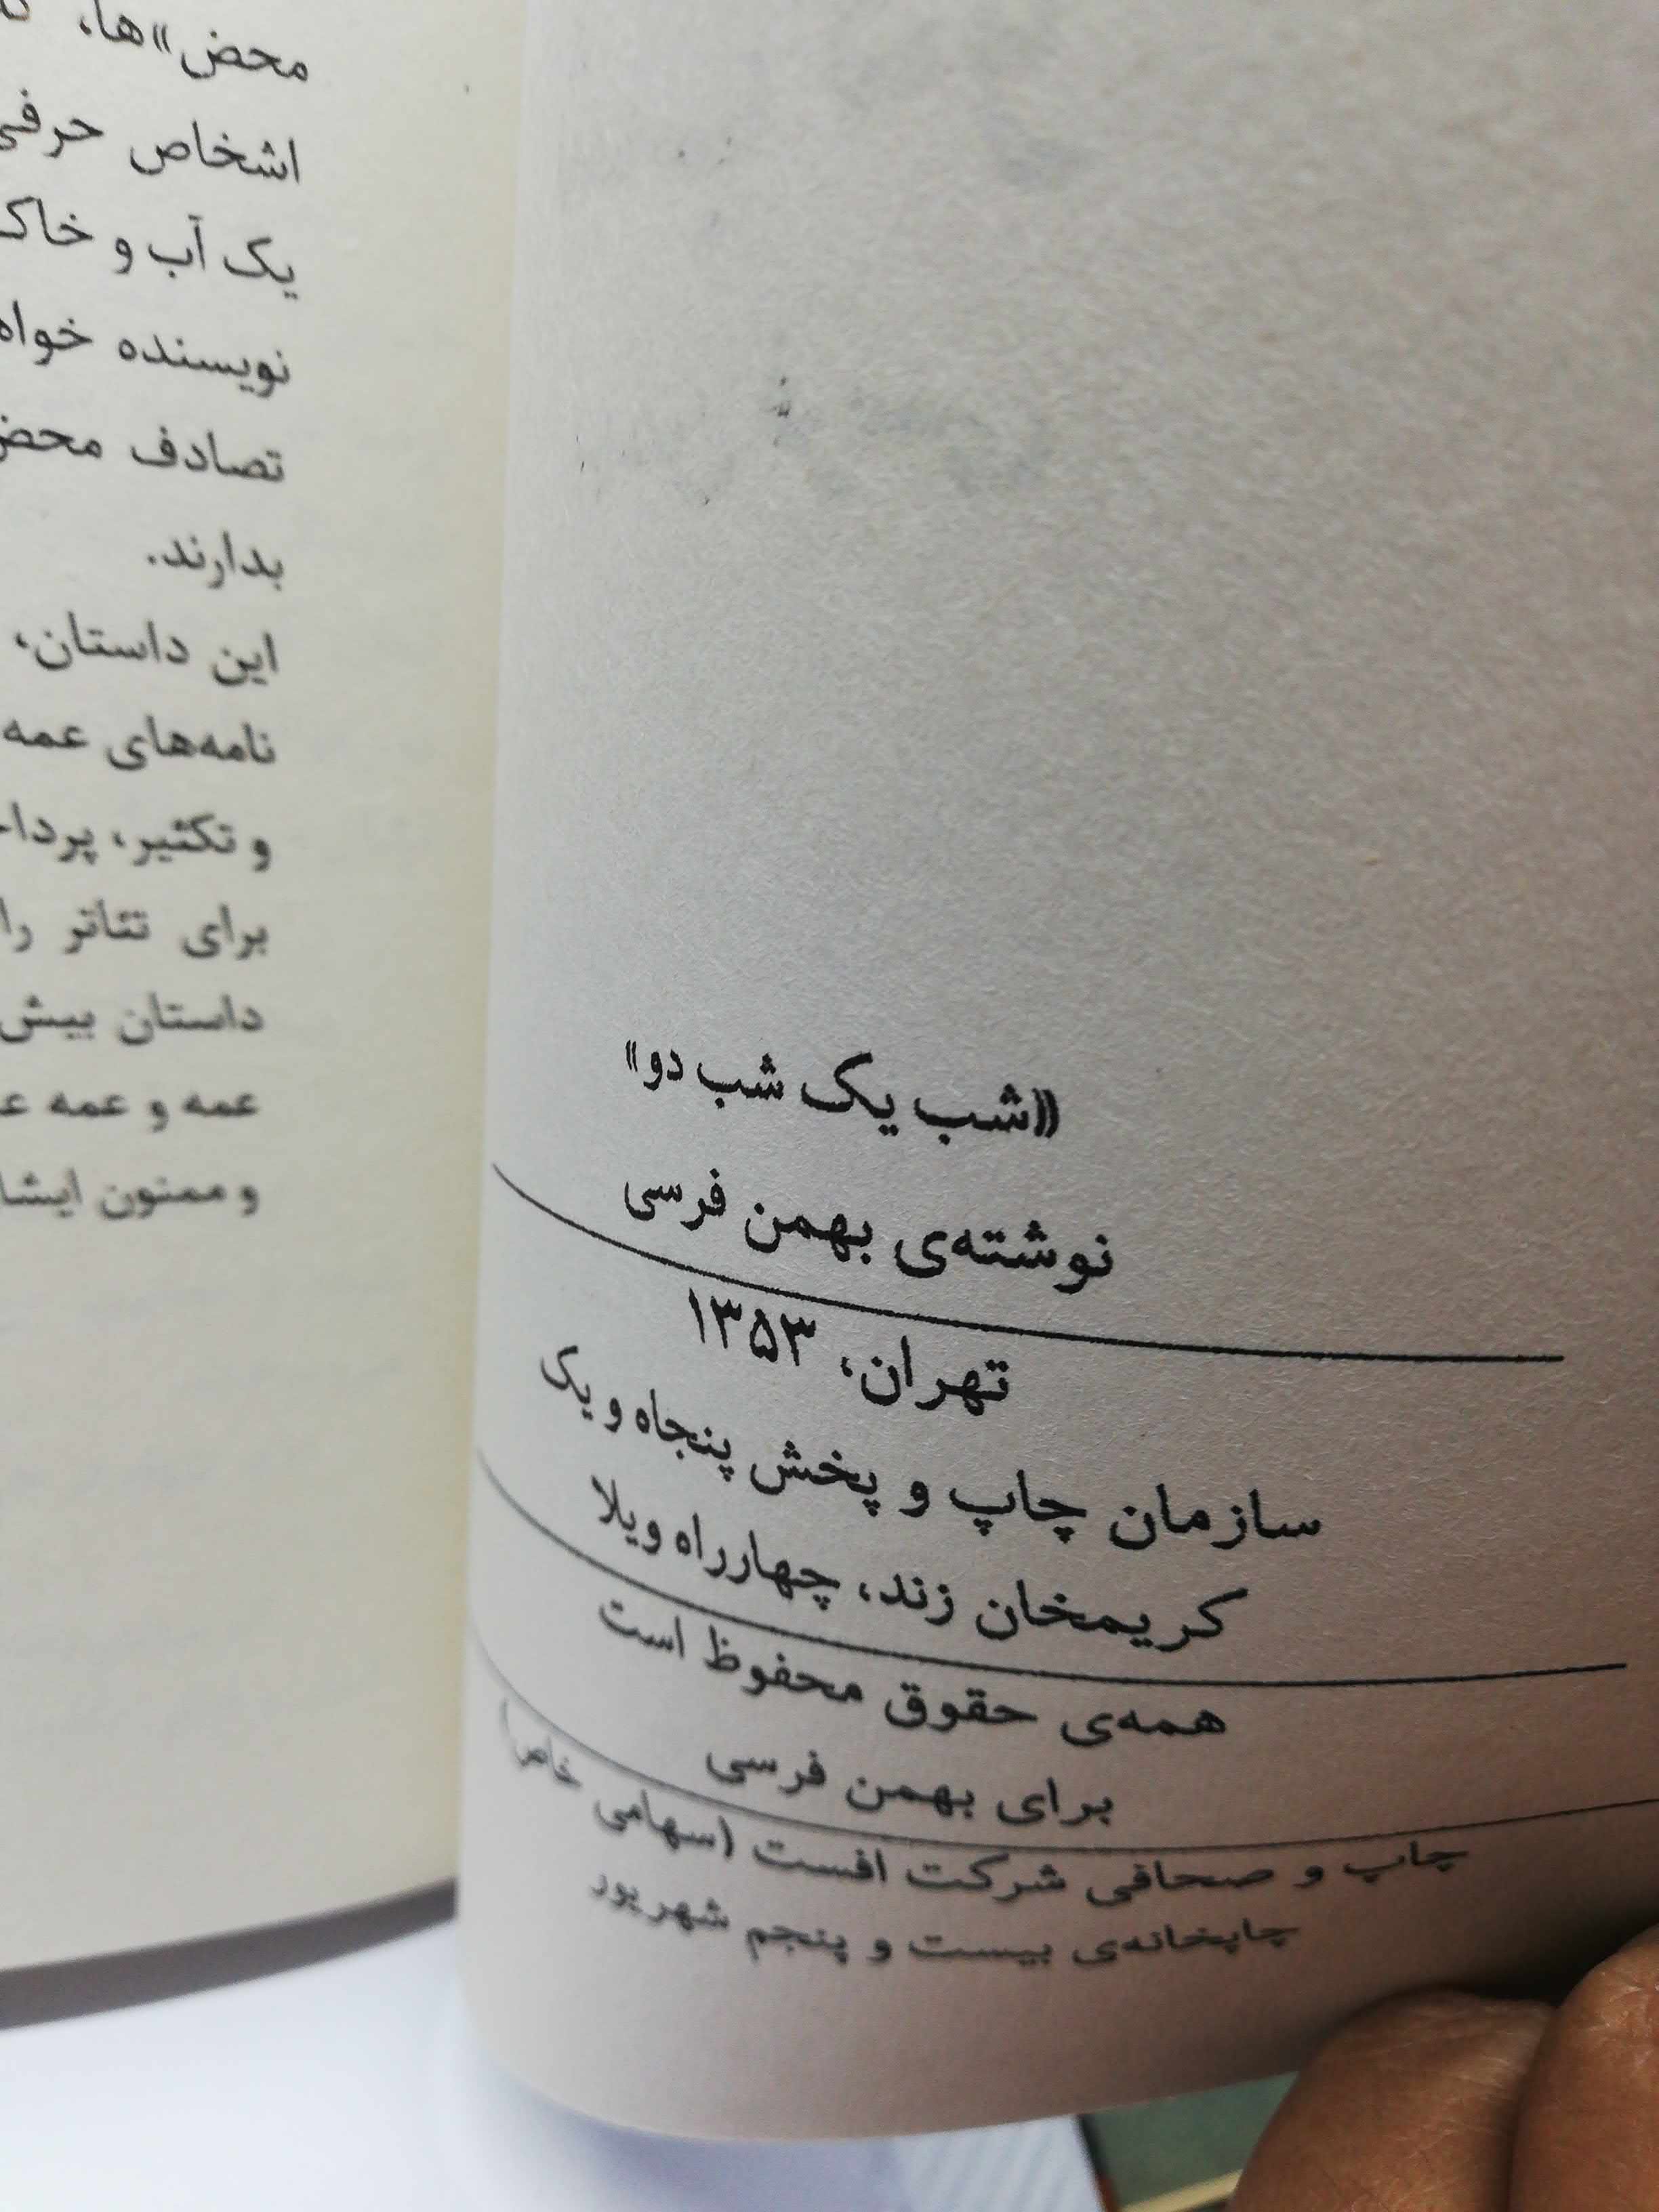 «شب یک شب دو»
نوشته‌ی بهمن فرسی
تهران، ۱۳۵۳
سازمان چاپ و پخش پنجاه و یک
کریمخان زند، چهارراه ویلا
همه‌ی حقوق محفوظ است
برای بهمن فرسی
چاپ و صحافی شرکت افست (سهامی خاص)
چاپخانه‌ی بیست و پنجم شهریور
محض»ها،
اشخاص حرفی
یک آب و خاک
نویسنده خواه
تصادف محض
بدارند.
این داستان،
نامه‌های عمه
و تکثیر،
برای تئاتر را
داستان بیش
عمه و عمه
و ممنون